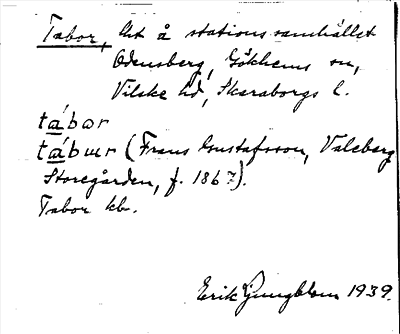 Tabor, lht å stationssamhället
Odensberg, Gökhems sn,
Vilske hd, Skaraborgs l.
tábar
tábɯr (Frans Gustafsson, Valeberg
Storegården, f. 1867).
Tabor kb.
Erik Ljungblom 1939.